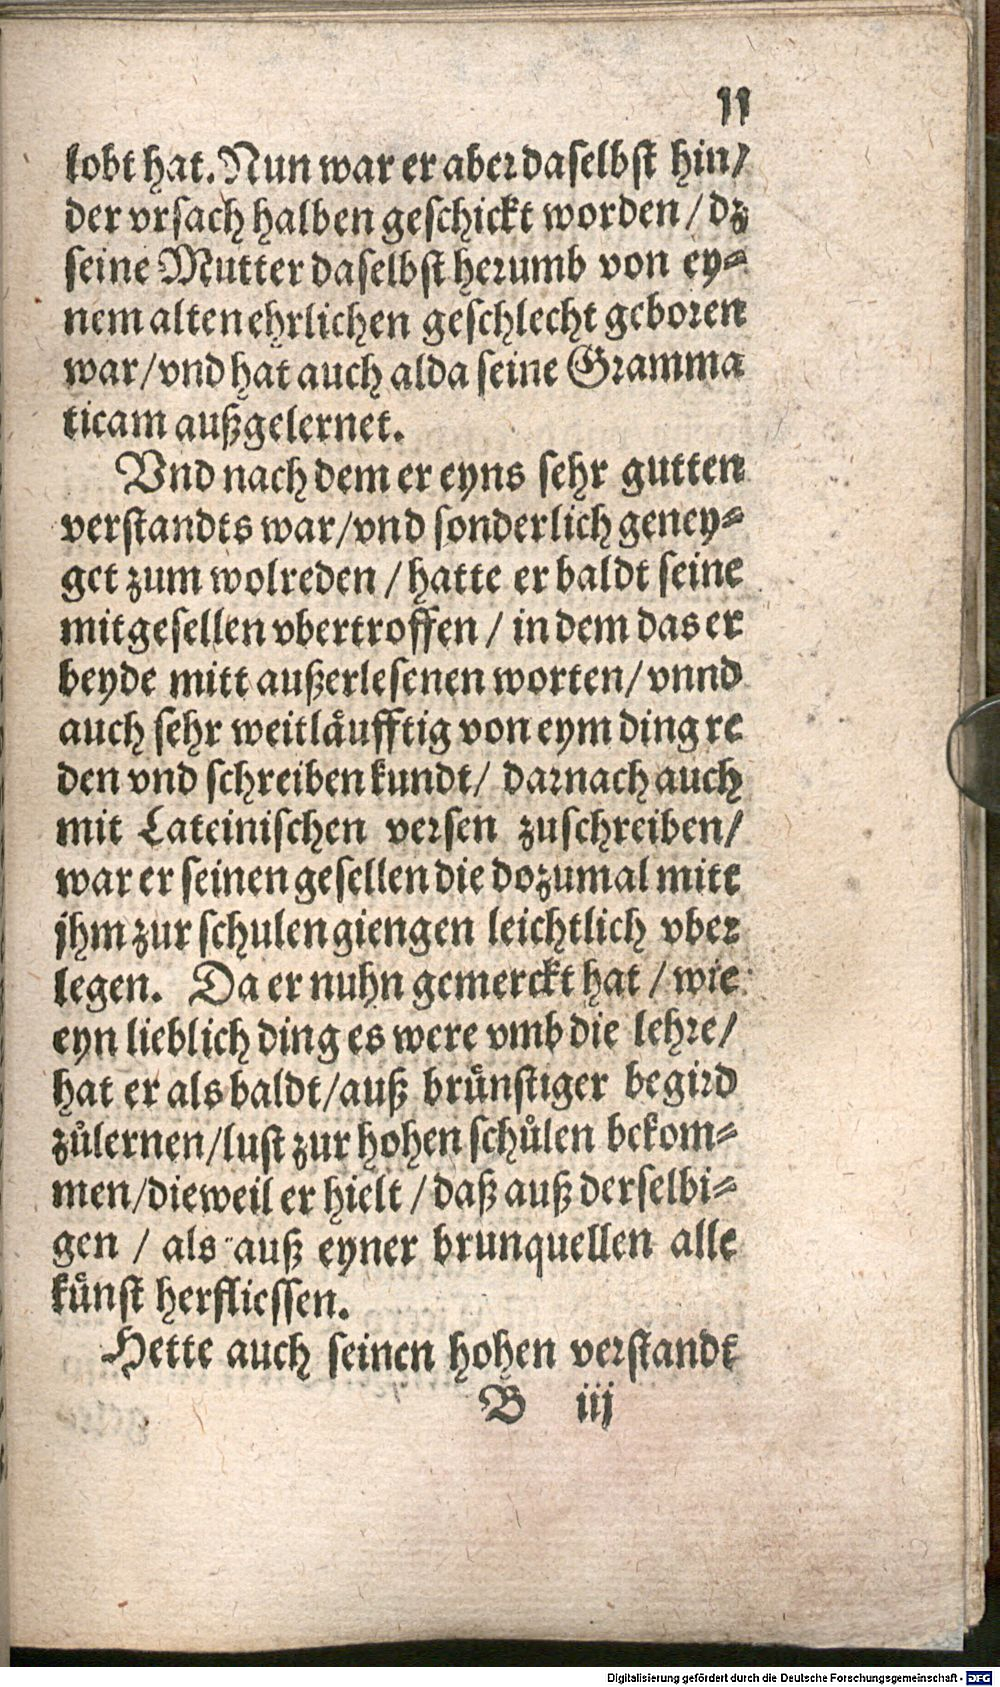 11
lobt hat. Nun war er aber daselbst hin/
der vrsach halben geschickt worden / dz
seine Mutter daselbst herumb von ey⸗
nem alten ehrlichen geschlecht geboren
war/vnd hat auch alda seine Gramma
ticam außgelernet.
Vnd nach dem er eyns sehr gutten
verstandts war/vnd sonderlich geney⸗
get zum wolreden / hatte er baldt seine
mitgesellen vbertroffen / in dem das er
beyde mitt außerlesenen worten/ vnnd
auch sehr weitlaͤufftig von eym ding re
den vnd schreiben kundt/ darnach auch
mit Lateinischen versen zuschreiben/
war er seinen gesellen die dozumal mitt
jhm zur schulen giengen leichtlich vber
legen. Da er nuhn gemerckt hat / wie
eyn lieblich ding es were vmb die lehre/
hat er als baldt/auß bruͤnstiger begird
zuͦlernen/lust zur hohen schuͦlen bekom⸗
men/dieweil er hielt / daß auß derselbi⸗
gen / als auß eyner brunquellen alle
kuͤnst herfliessen.
Hette auch seinen hohen verstandt
B iij
Digitalisierung gefördert durch die Deutsche Forschungsgemeinschaft - DFG